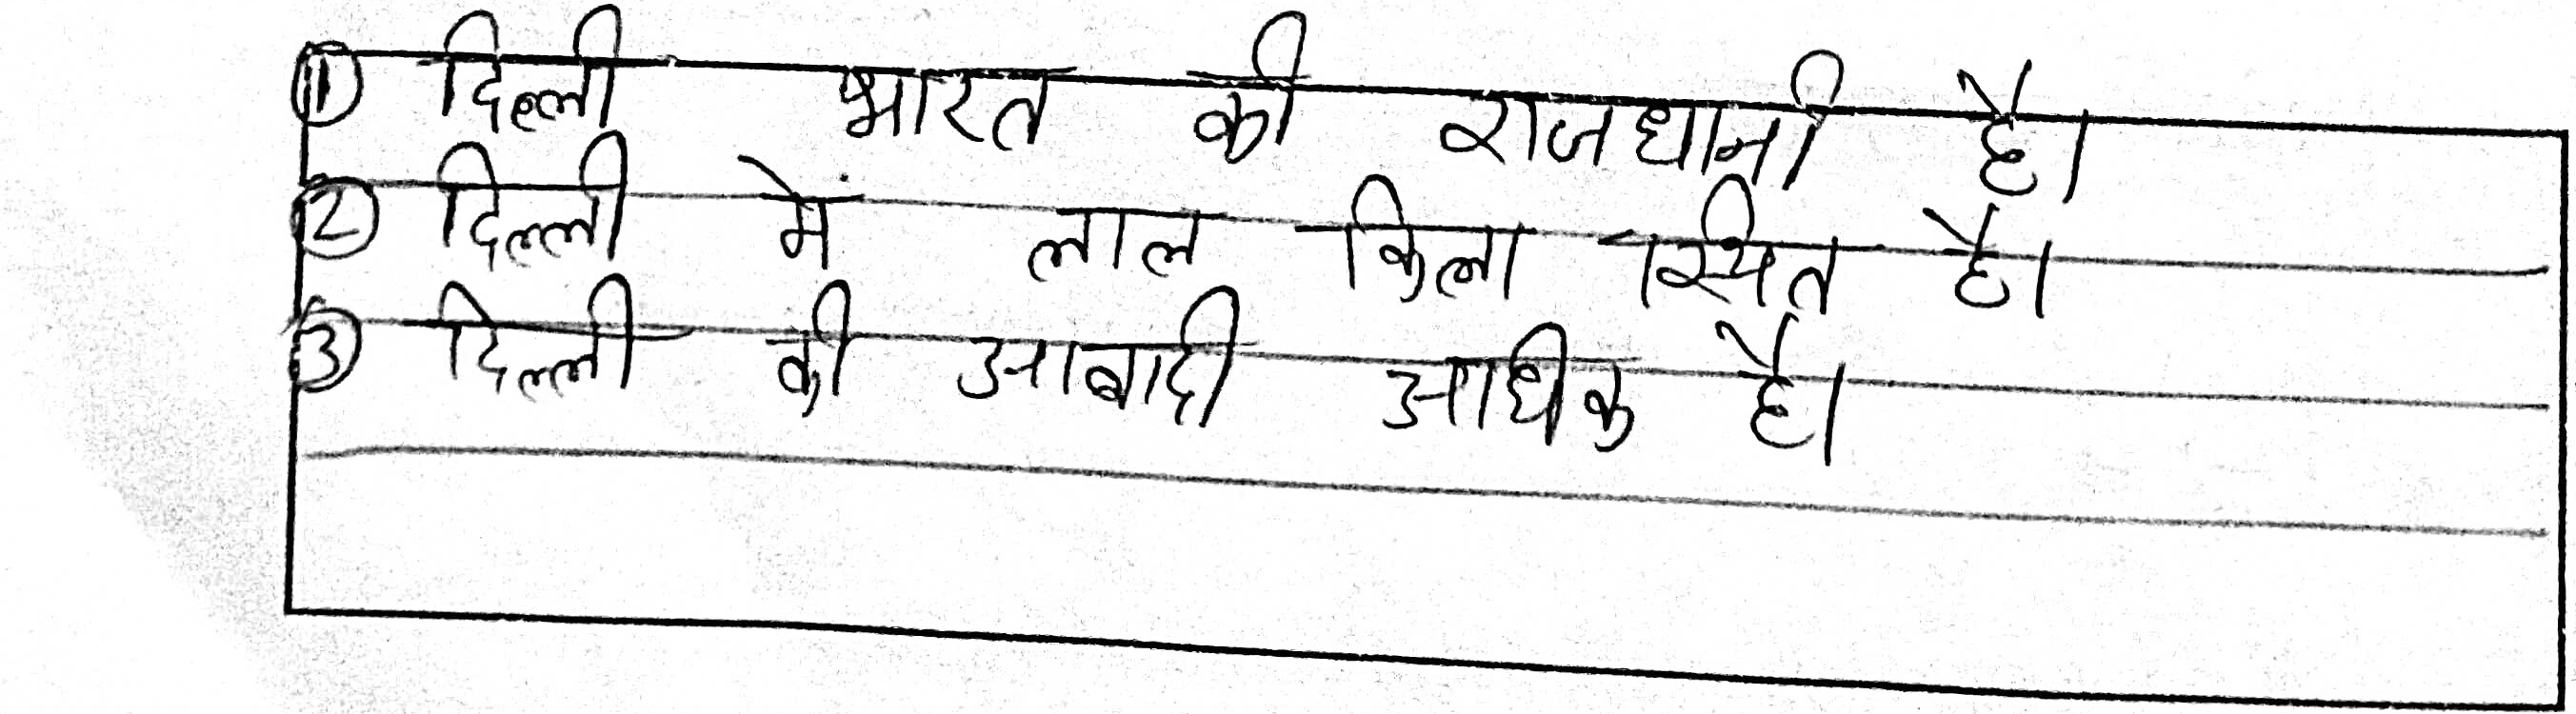 ① दिल्ली भारत की राजधानी है।
② दिल्ली में लाल किला स्थित है।
③ दिल्ली की आबादी अधिक है।